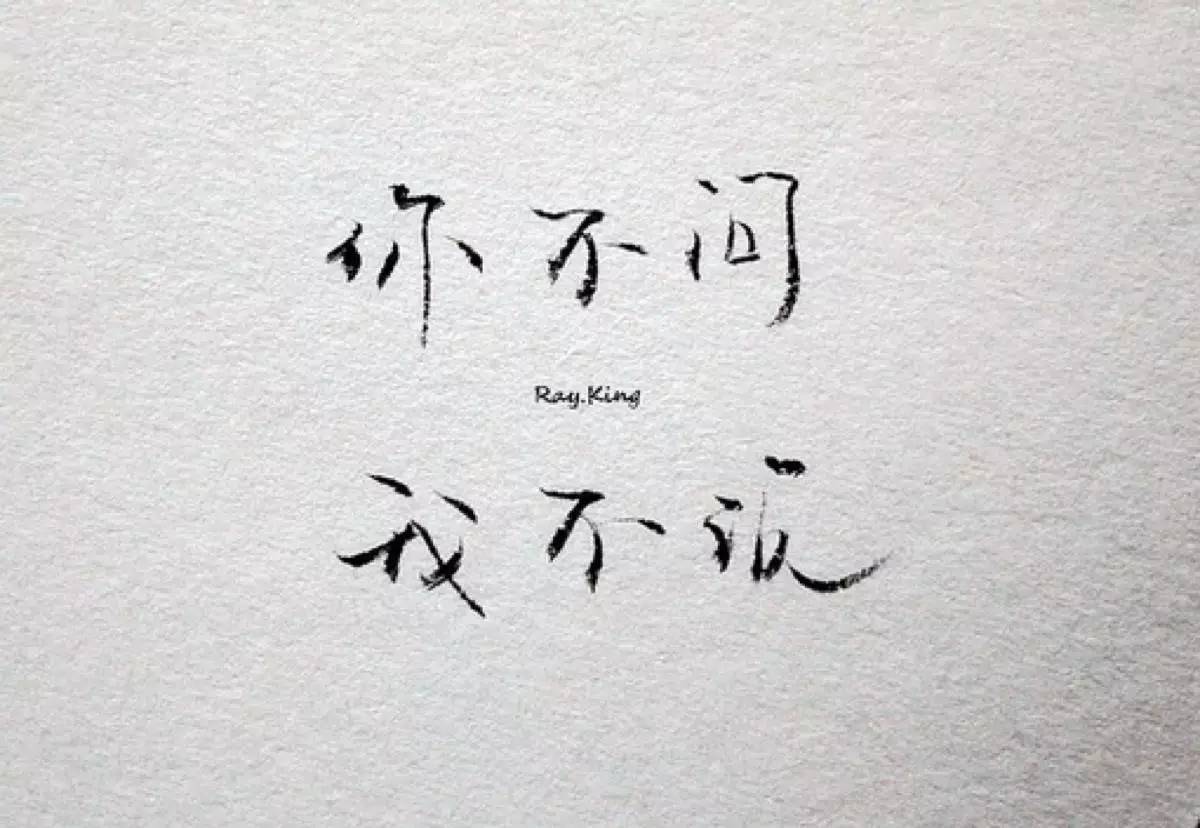 你不问
Ray.King
我不说